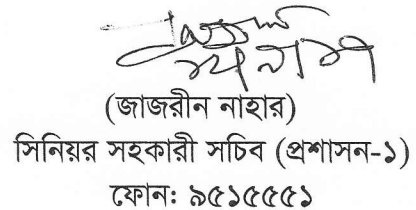 (জাজরীন নাহার)
সিনিয়র সহকারী সচিব (প্রশাসন-১)
ফোন: ৯৫১৫৫৫১